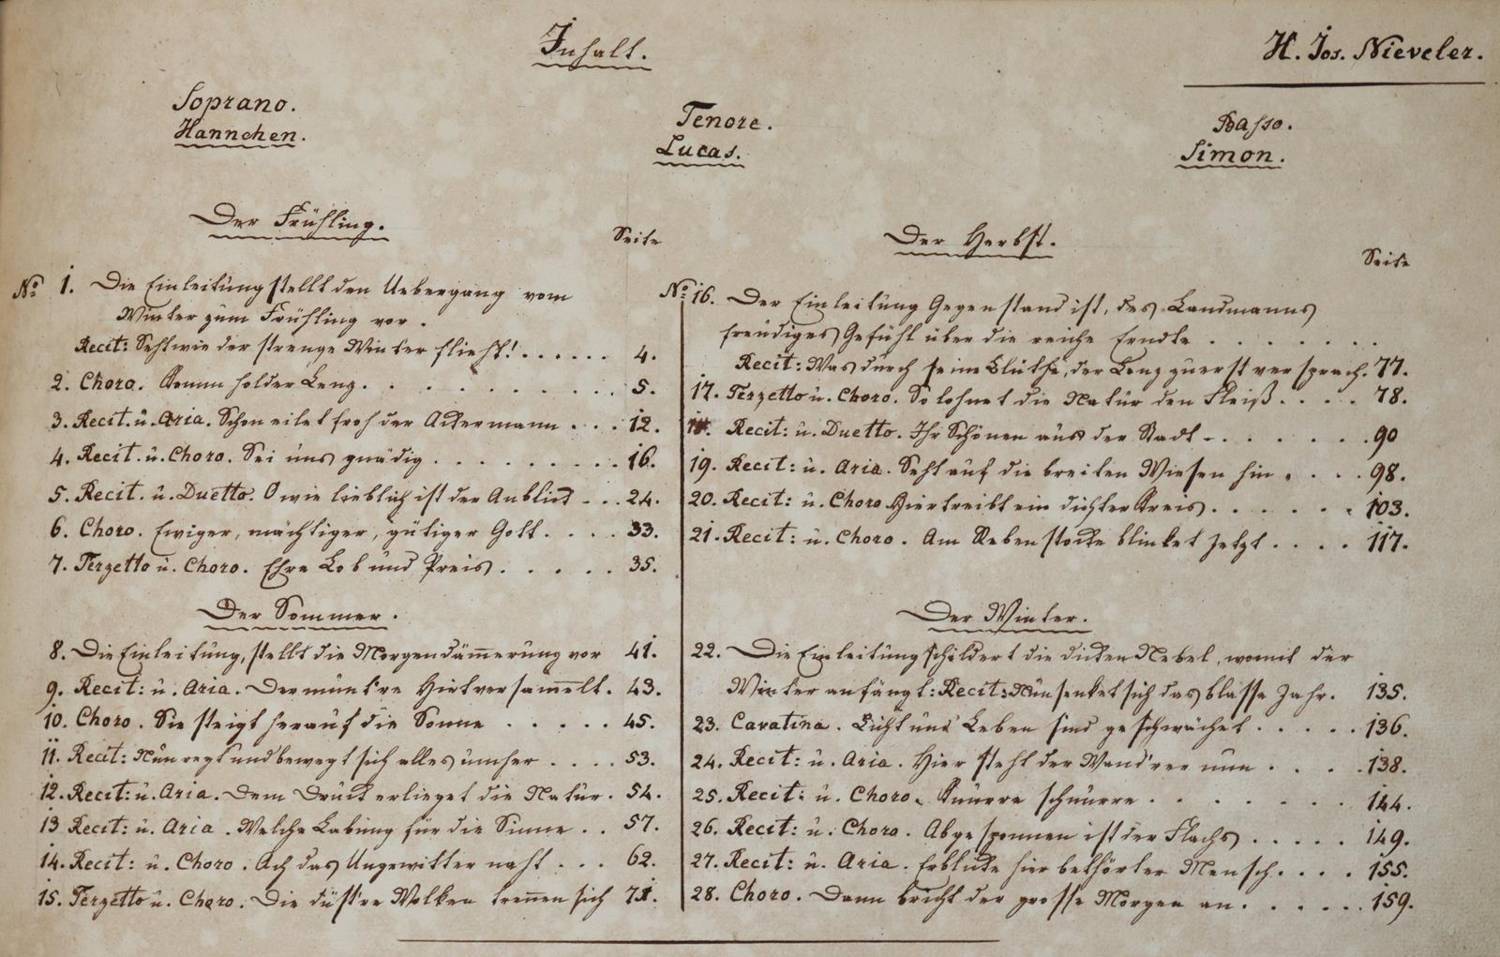 Inhalt.
H. Jos. Nieveler.
Soprano.
Hannchen.
Tenore.
Lucas.
Basso.
Simon.
Der Frühling.
Seite
No 1. Die Einleitung stellt den Uebergang vom
Winter zum Frühling vor.
Recit: Seht wie der strenge Winter flieht! . . . . . . 4.
2. Choro. Komm holder Lenz. . . . . . . . . 5.
3. Recit. u. Aria. Schon eilet froh der Ackermann . . . 12.
4. Recit. u. Choro. Sei uns gnädig . . . . . . . . 16.
5. Recit. u. Duetto. O wie lieblich ist der Anblick . . . 24.
6. Choro. Ewiger, mächtiger, gütiger Gott. . . . . 33.
7. Terzetto u. Choro. Ehre Lob und Preis. . . . . . 35.
Der Sommer.
8. Die Einleitung, stellt die Morgendäm̅erung vor 41.
9. Recit: u. Aria. Der munt're Hirt versam̅elt. 43.
10. Choro. Sie steigt herauf die Sonne . . . . . 45.
11. Recit: Nun regt und bewegt sich alles umher . . . . 53.
12. Recit: u. Aria. Dem Druck erlieget die Natur. 54.
13 Recit: u. Aria. Welche Labung für die Sinne . . 57.
14. Recit: u. Choro. Ach das Ungewitter naht . . . 62.
15. Terzetto u. Choro. Die düst're Wolken tren̅en sich 71.
Der Herbst.
Seite
No 16. Der Einleitung Gegenstand ist, des Landmanns
freudiges Gefühl über die reiche Erndte . . . . . . .
Recit: Was durch seine Blüthe, der Lenz zuerst versprach. 77.
17. Terzetto u. Choro. So lohnet die Natur den Fleiß . . . . 78.
18. Recit: u. Duetto. Ihr Schönen aus der Stadt - . . . . . . . 90
19. Recit: u. Aria. Seht auf die breiten Wiesen hin . . . . 98.
20. Recit: u. Choro Hier treibt ein dichter Kreis. . . . . . . 103.
21. Recit: u. Choro. Am Rebenstocke blinket jetzt . . . . 117.
Der Winter.
22. Die Einleitung schildert die dicken Nebel, womit der
Winter anfängt: Recit: Nun senket sich das blasse Jahr. 135.
23. Cavatina. Licht und Leben sind geschwächet . . . . . 136.
24. Recit: u. Aria. Hier steht der Wand'rer nun . . . . 138.
25. Recit: u. Choro. Knurre schnurre . . . . . . . 144.
26. Recit: u. Choro. Abgesponnen ist der Flachs . . . . . 149.
27. Recit: u. Aria. Erblicke hier bethörter Mensch. . . . 155.
28. Choro. Dann bricht der grosse Morgen an. . . . . . 159.